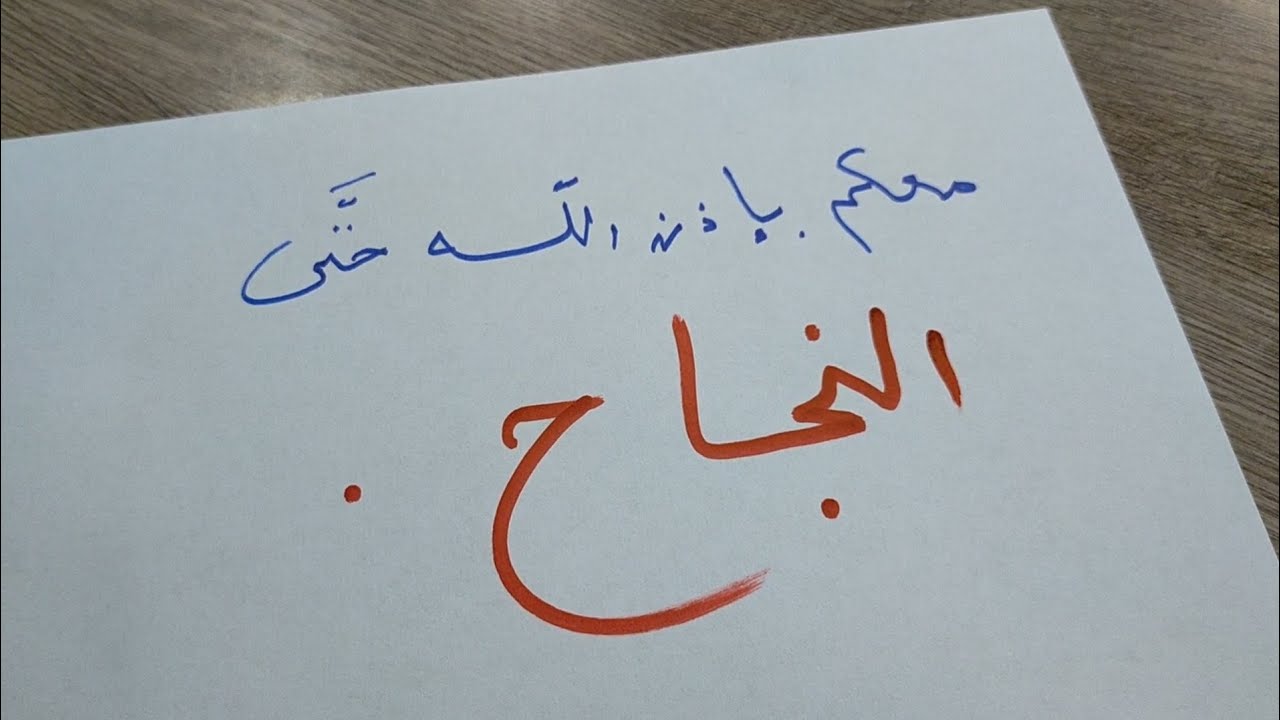 معكم بإذن اللّه حتَّى
النجاح .